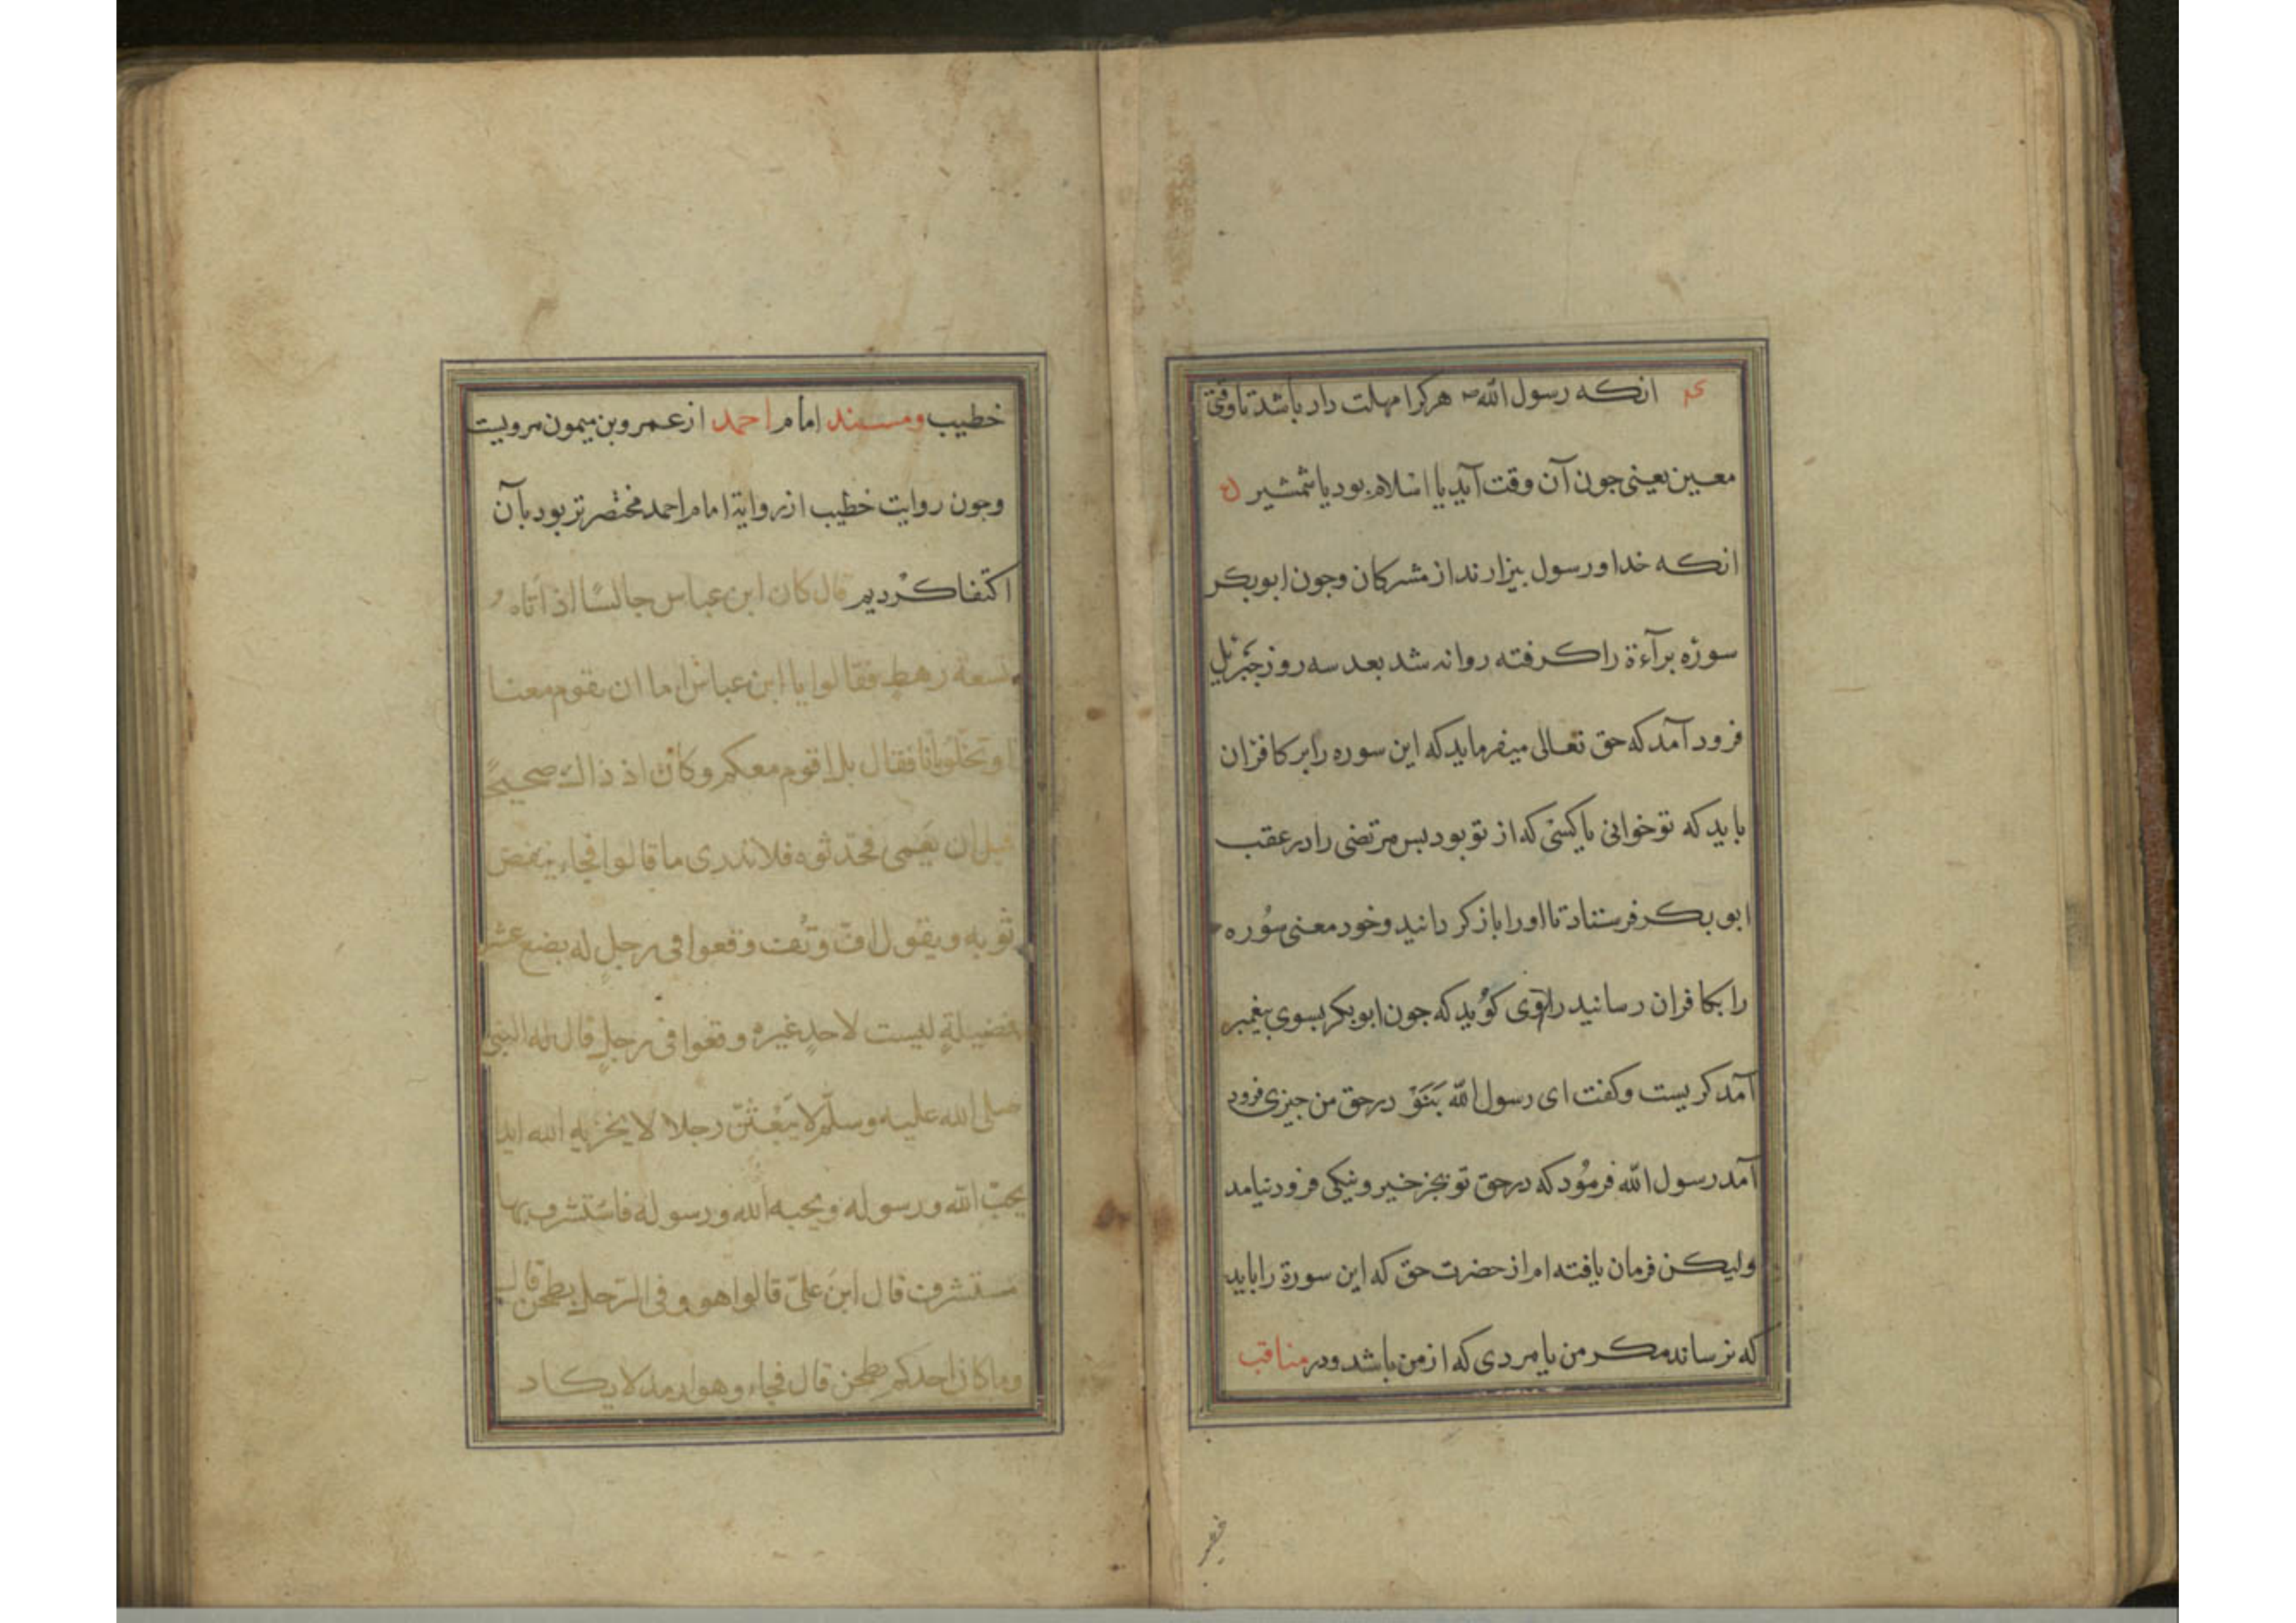 انکه رسول الله هرکرا مهلت دار باشد تا وقتی
معین یعنی جون آن وقت آید یا اسلام بود یا شمشیر
انکه خدا و رسول بیزارند از مشرکان وجون ابوبکر
سوره برآءة را کرفته روانه شد بعد سه روز جبرئیل
فرود آمد که حق تعالی میفرماید که این سوره را بر کافران
باید که تو خوانی یا کسی که از تو بود بس مرتضی را در عقب
ابوبکر فرستاد تا او را باز کردانید و خود معنی سوره
را بکافران رسانید راوی کوید که جون ابوبکر بسوی بیغمبر
آمد کریست و کفت ای رسول الله در حق من جیزی فرود
آمد رسول الله فرمود که در حق تو بجز خیر و نیکی فرود نیامد
ولیکن فرمان یافته ام از حضرت حق که این سورة را باید
که نرساند مکر من یا مردی که از من باشد ودر مناقب
خطیب ومسند امام احمد از عمرو بن میمون مرویست
وجون روایت خطیب از روایة امام احمد مختصرتر بود بآن
اکتفا کردیم قال کان ابن عباس جالسًا اذ أتاه
تسعة رهط فقالوا یا ابن عباس اما ان تقوم معنا
او تخلو بنا فقال بل اقوم معکم وکان اذ ذاك صحیحًا
قبل ان یعمی فتحدثوه فلا ندری ما قالوا فجاء ینفض
ثوبه ویقول اف وتف وقعوا فی رجل له بضع عشر
فضیلةٍ لیست لاحدٍ غیره وقعوا فی رجلٍ قال له النبی
صلی الله علیه وسلّم لابعثنّ رجلا لا یخزیه الله ابدا
یحبّ الله ورسوله ویحبه الله ورسوله فاستشرف بها
مستشرف قال این علیّ قالوا هو فی الرّحل یطحن قال
وما کان احدکم یطحن قال فجاء وهو ارمد لا یکاد